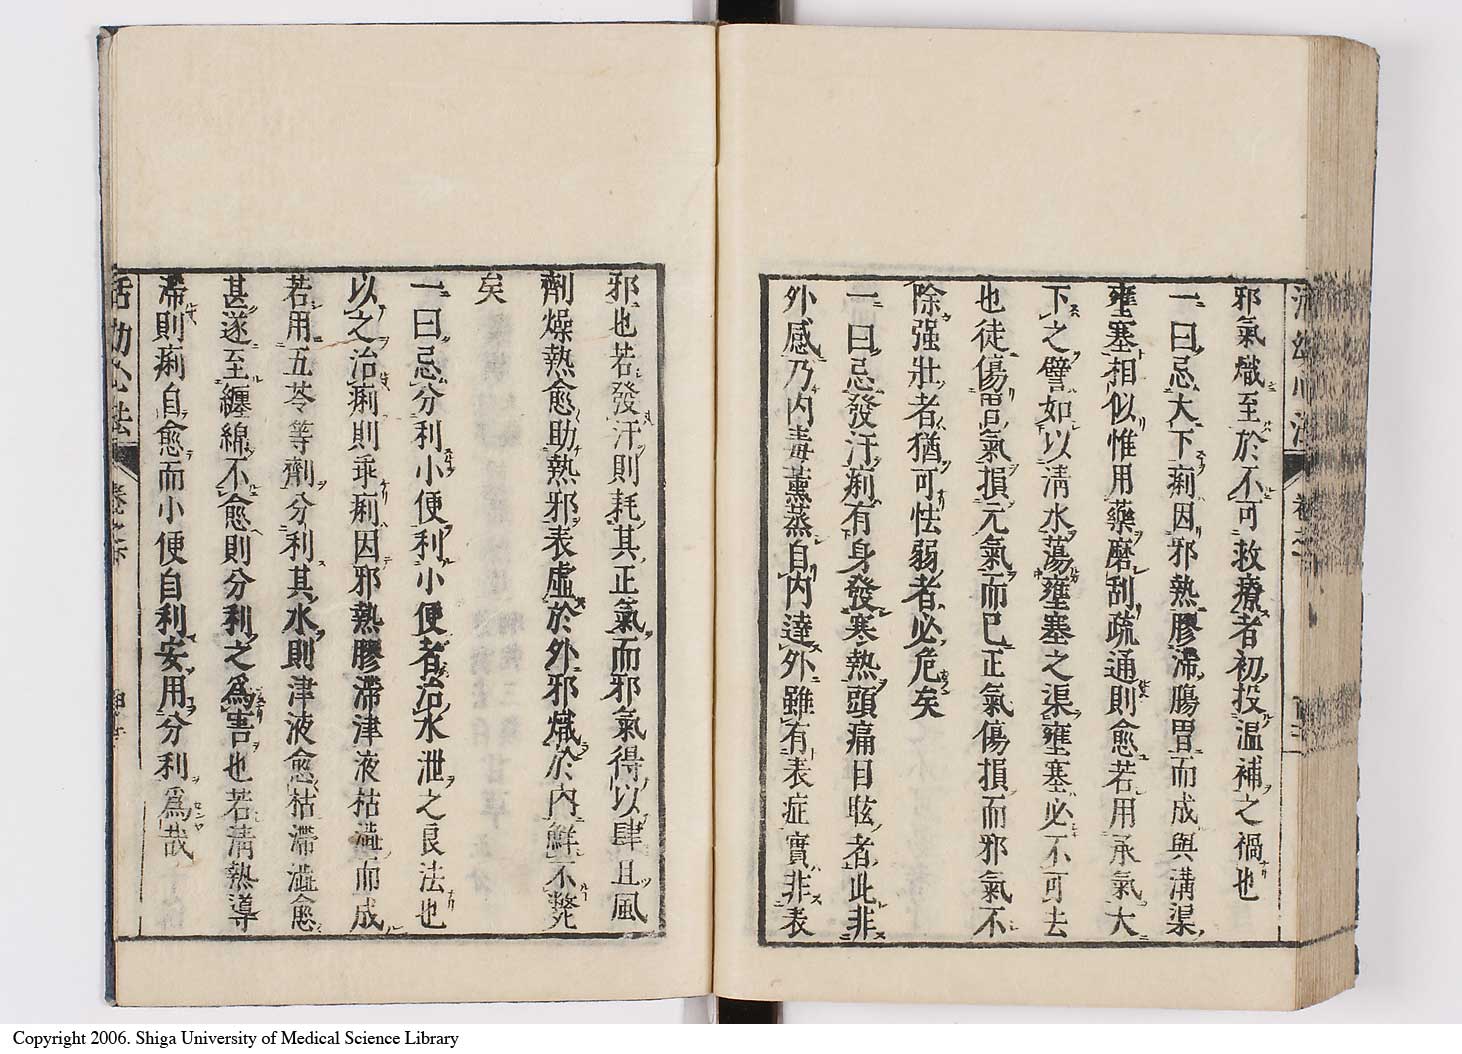 邪氣熾至於不可救療者初投温補之禍也
一曰忌大下痢因邪熱膠滯腸胃而成與溝渠
壅塞相似惟用藥磨刮疏通則愈若用承氣大
下之譬如以淸水蕩壅塞之渠壅塞必不可去
也徒傷胃氣損元氣而已正氣傷損而邪氣不
除强壯者猶可怯弱者必危矣
一曰忌發汗痢有身發寒熱頭痛目眩者此非
外感乃内毒薰蒸自内達外雖有表症實非表
邪也若發汗則耗其正氣而邪氣得以肆且風
劑燥熱愈助熱邪表虛於外邪熾於内鮮不斃
矣
一曰忌分利小便利小便者治水泄之良法也
以之治痢則乖痢因邪熱膠滯津液枯澁而成
若用五苓等劑分利其水則津液愈枯滯澁愈
甚遂至纏綿不愈則分利之爲害也若淸熱導
滯則痢自愈而小便自利安用分利爲哉
活幼心法
Copyright 2006. Shiga University of Medical Science Library